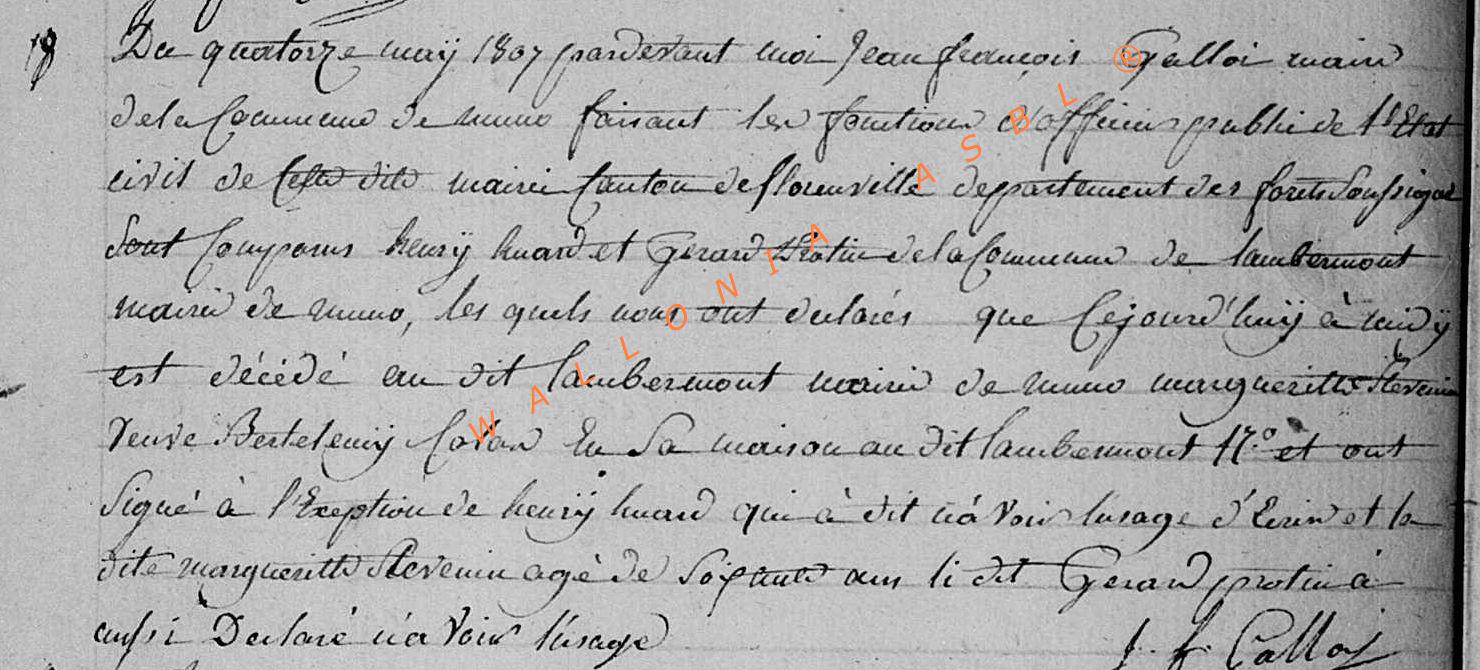 18
Du quatorze maÿ 1807 pardevant moi Jean françois Galloi maire
de la Commune de muno faisant les fonctions d'officier public de l'Etat
civil de cette dite mairie Canton de florenville departement des forets Soussigné
Sont Comparus henrÿ huard et Gerard Protin de la Commune de lambermont
mairie de muno, les quels nous ont declarés que Cejourd'huÿ à midÿ
est décédé au dit lambermont mairie de muno margueritte Stevenin
Veuve Bertelemÿ Colas En Sa maison au dit lambermont n° 17 et ont
Signé à l'Exeption de henrÿ huard qui à dit n'avoir l'usage d'Ecrire et la
dite margueritte Stevenin agé de Soixante ans le dit Gerard protin à
aussi Declaré n'a Voir l'usage
J. f. Galloi
WALLONIA ASBL ®